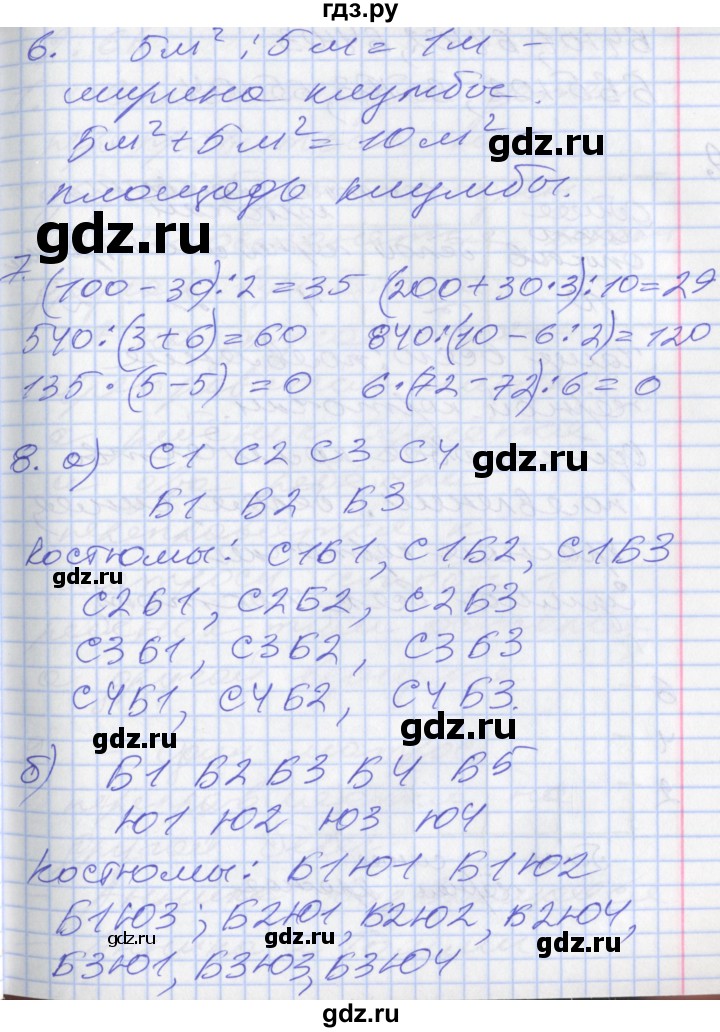 гдз.ру
6. 5м² : 5м = 1м –
ширина клумбы.
5м² + 5м² = 10м²
gdz.ru
площадь клумбы.
gdz.ru
7. (100 – 30) : 2 = 35 (200 + 30·3) : 10 = 29
540 : (3 + 6) = 60 840 : (10 – 6 : 2) = 120
135 · (5 – 5) = 0 6 · (72 – 72) : 6 = 0
8. а) С1 С2 С3 С4 gdz.ru
Б1 Б2 Б3
Костюмы: С1Б1, С1Б2, С1Б3
gdz.ru
С2Б1, С2Б2, С2Б3
С3Б1, С3Б2, С3Б3
С4Б1, С4Б2, С4Б3.
gdz.ru
б) Б1 Б2 Б3 Б4 Б5
Ю1 Ю2 Ю3 Ю4
Костюмы: Б1Ю1 Б1Ю2
Б1Ю3; Б2Ю1, Б2Ю2, Б2Ю4,
gdz.ru gdz.ru gdz.ru
Б3Ю1, Б3Ю3, Б3Ю4
gdz.ru